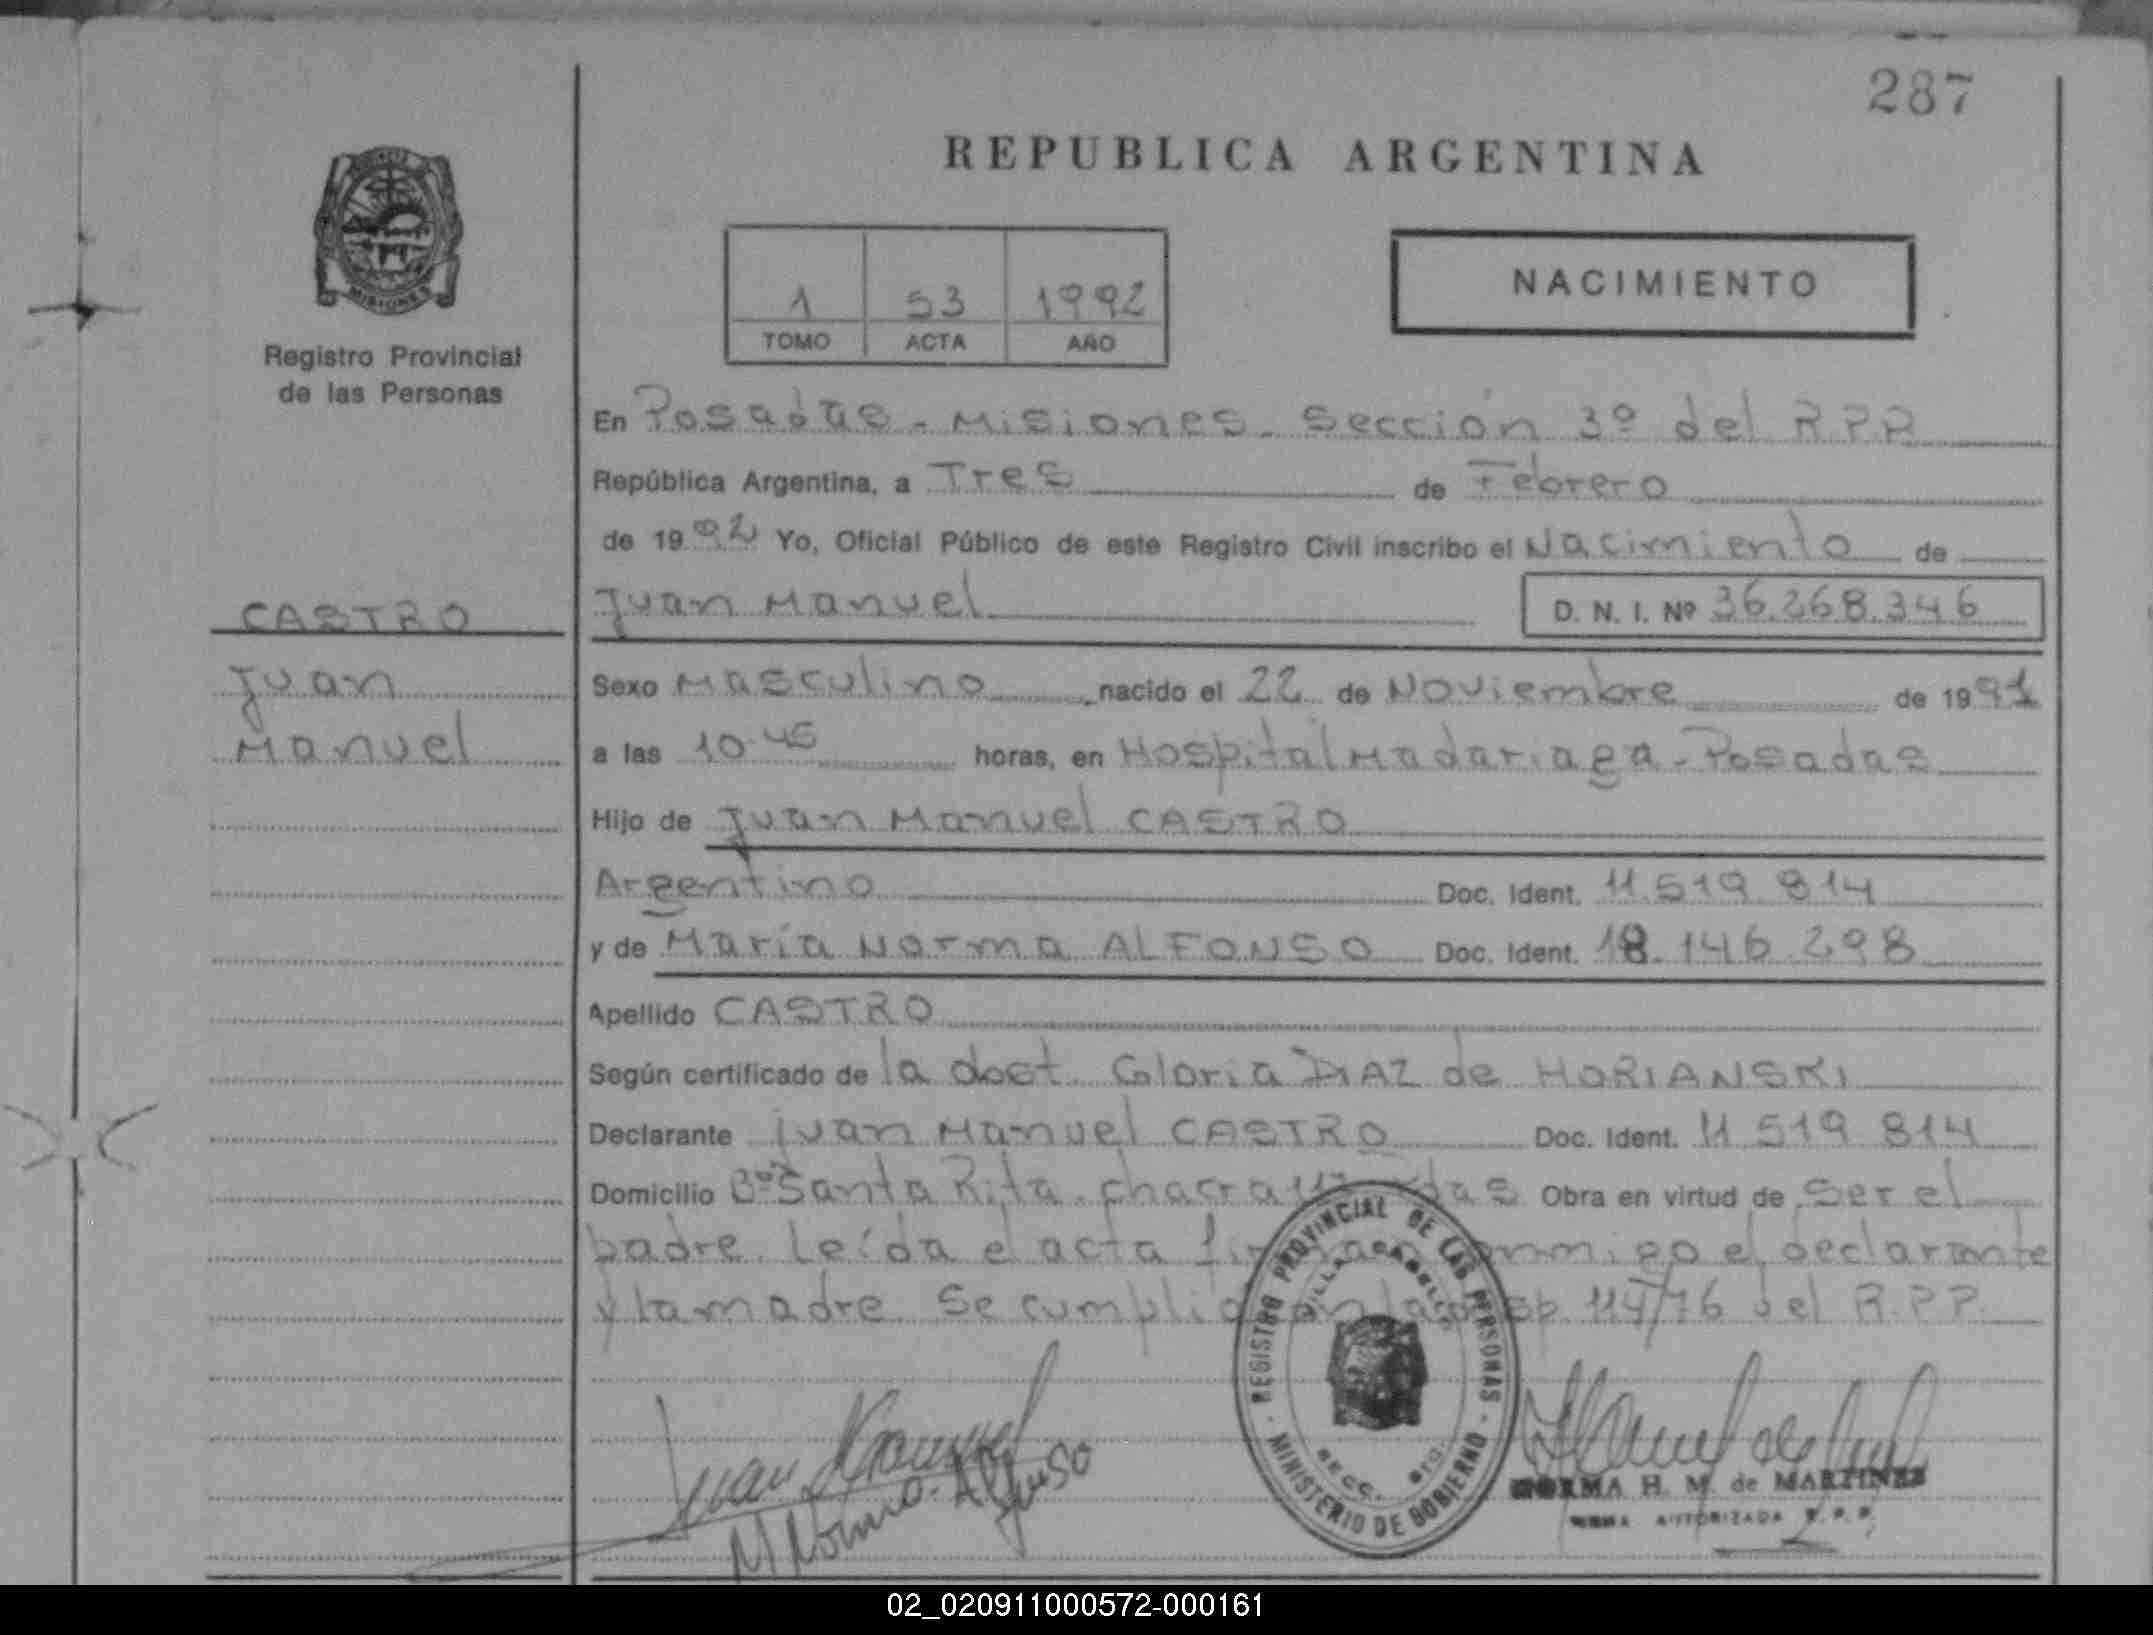 287
REPUBLICA ARGENTINA
MISIONES
Registro Provincial
de las Personas
1 53 1992
TOMO ACTA AÑO
NACIMIENTO
En Posadas - Misiones - Sección 3º del R.P.P.
República Argentina, a Tres de Febrero
de 1992 Yo, Oficial Público de este Registro Civil inscribo el Nacimiento de
Juan Manuel D. N. I. Nº 36.268.346
CASTRO
Juan
Manuel
Sexo Masculino, nacido el 22 de Noviembre de 1991
a las 10.45 horas, en Hospital Madariaga - Posadas
Hijo de Juan Manuel CASTRO
Argentino Doc. Ident. 11.519.814
y de María Norma ALFONSO Doc. Ident. 18.146.298
Apellido CASTRO
Según certificado de la doct. Gloria DIAZ de HORIANSKI
Declarante Juan Manuel CASTRO Doc. Ident. 11.519.814
Domicilio Bº Santa Rita. chacra Obra en virtud de Ser el
padre. Leída el acta el declarante
y la madre. Se 114/76 del R.P.P.
REGISTRO PROVINCIAL DE LAS PERSONAS
MINISTERIO DE GOBIERNO
Juan Manuel
M Norma Alfonso
NORMA H. M. de MARTINEZ
FIRMA AUTORIZADA R. P. P.
02_020911000572-000161